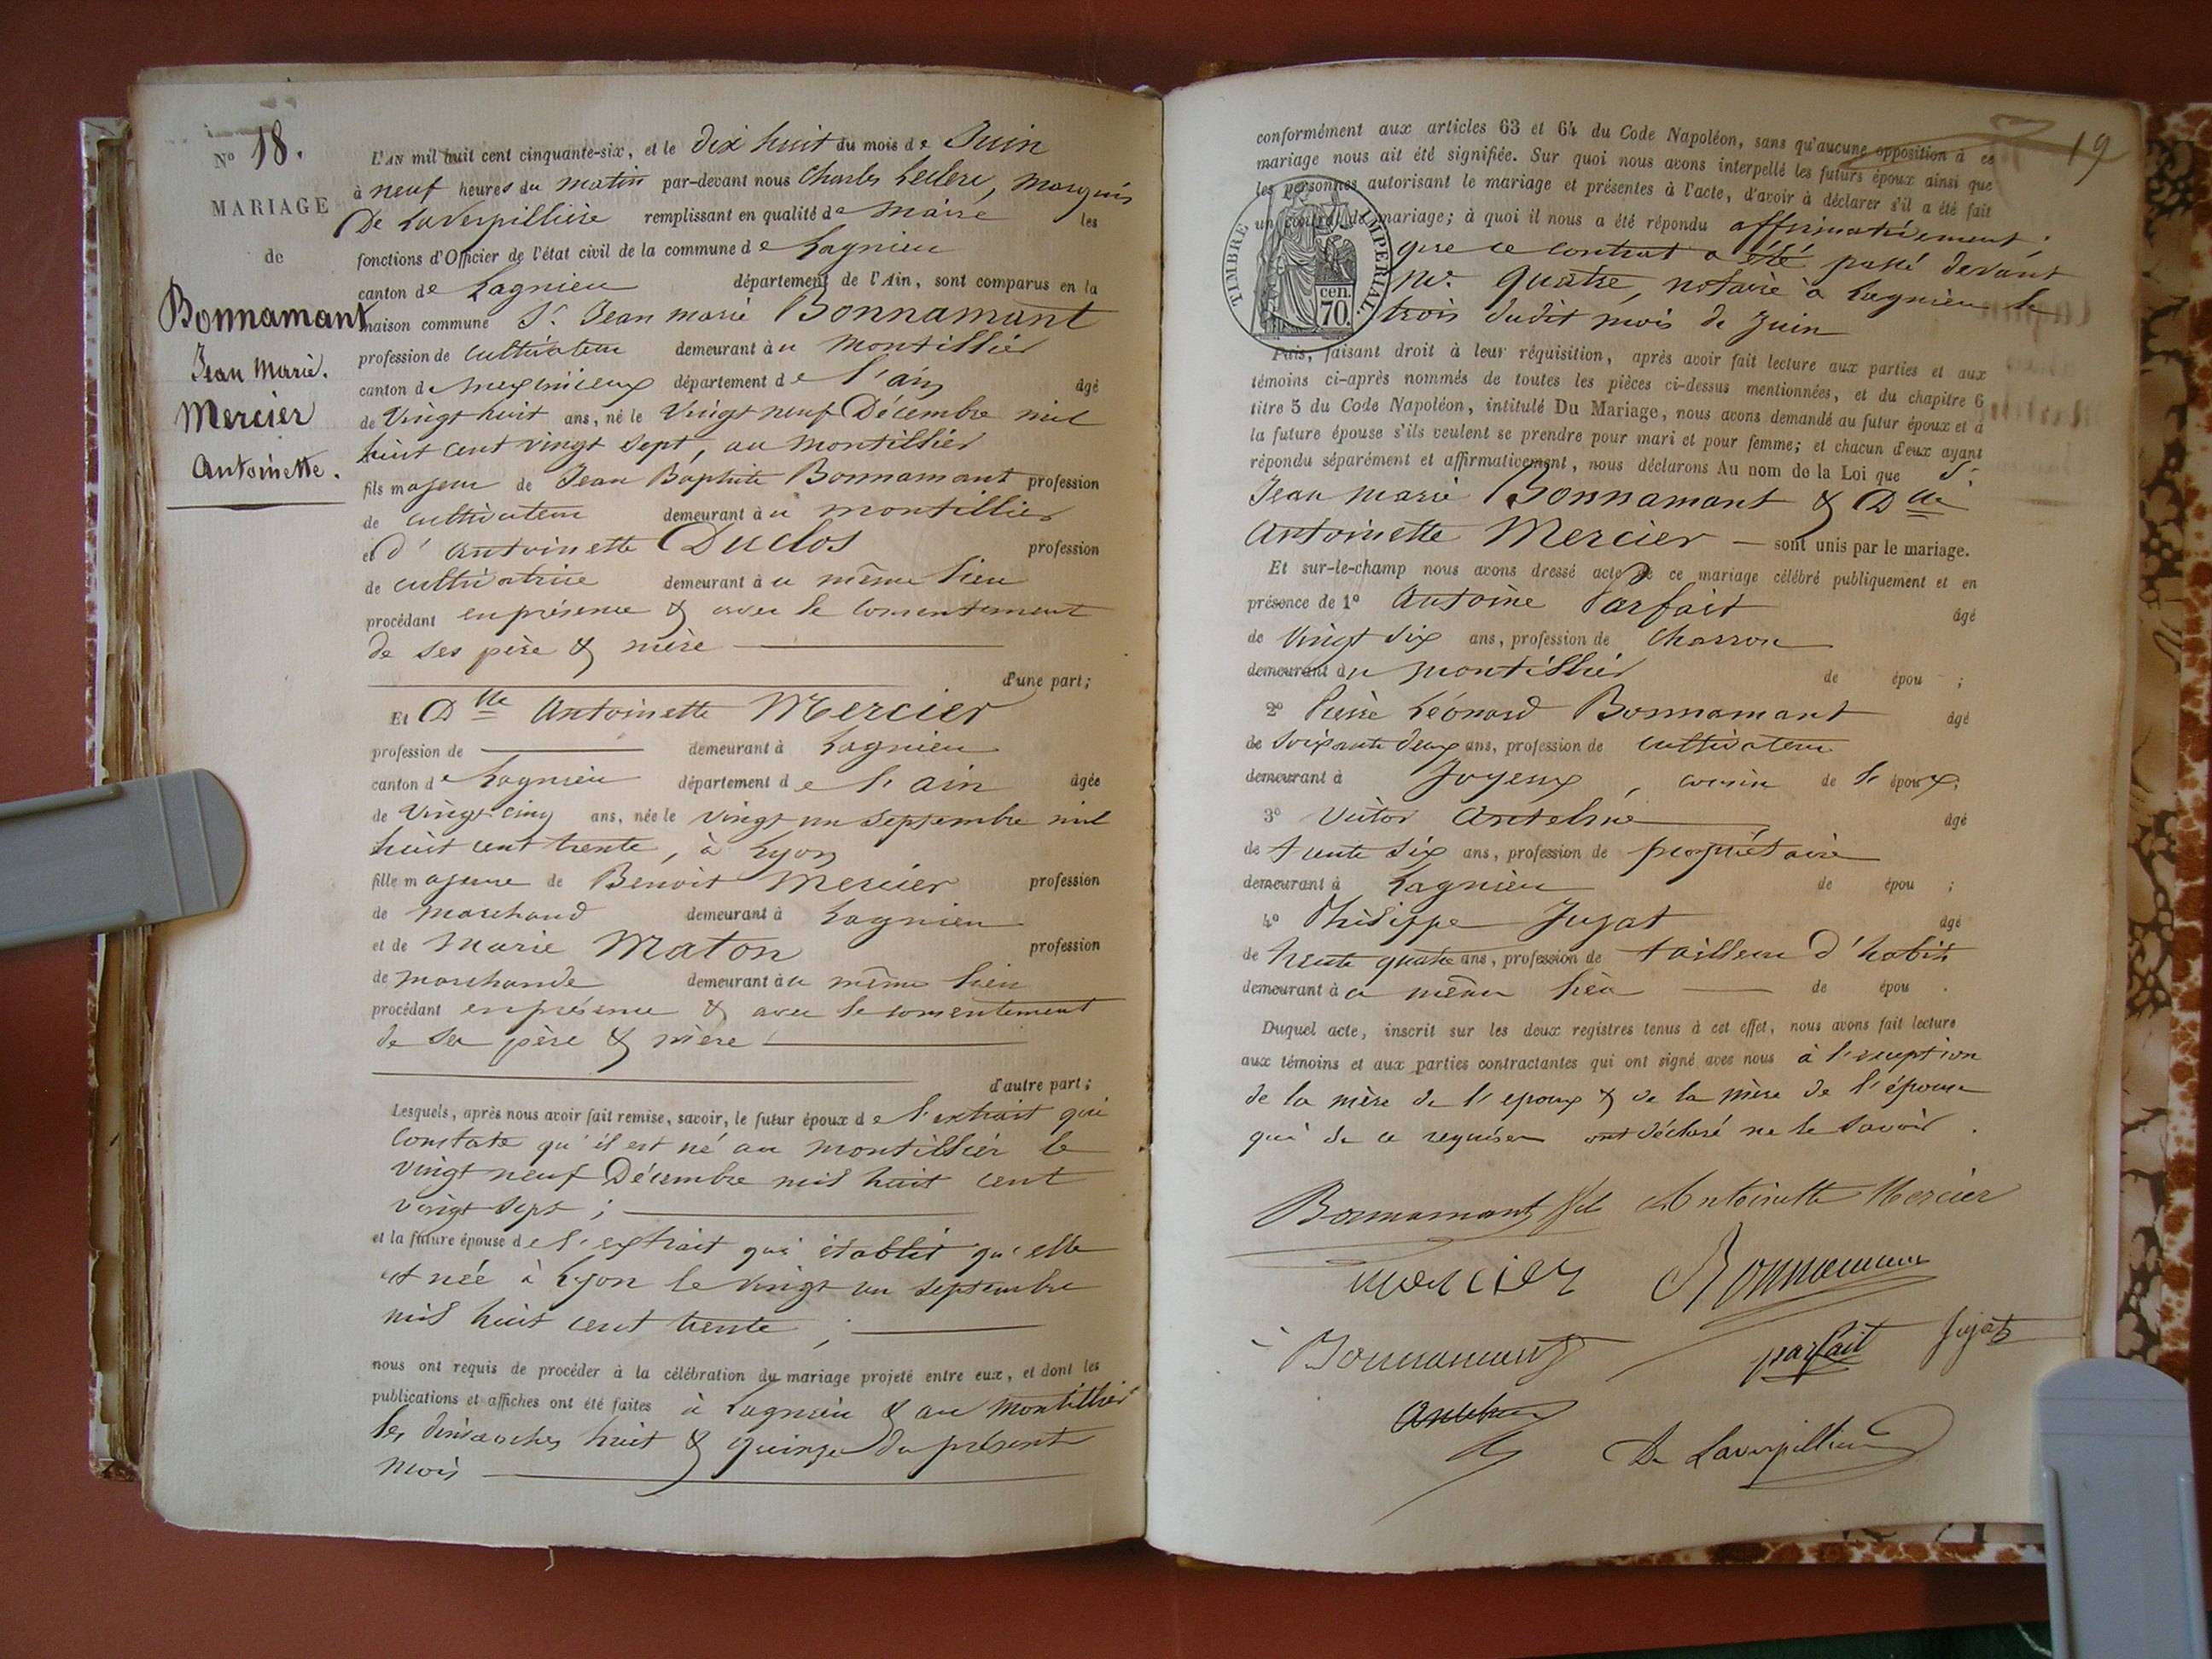 N° 18.
MARIAGE
de
Bonnamant
Jean Marie.
Mercier
Antoinette.
L'AN mil huit cent cinquante-six, et le dix huit du mois de Juin
à neuf heures du matin par-devant nous Charles Leclerc, Marquis
De Laverpillière remplissant en qualité de Maire les
fonctions d'Officier de l'état civil de la commune de Lagnieu
canton de Lagnieu département de l'Ain, sont comparus en la
maison commune Sr. Jean marie Bonnamant
profession de cultivateur demeurant à u Montillier
canton de Meximieux département de l'ain âgé
de Vingt huit ans, né le Vingt neuf Décembre mil
huit cent vingt sept, au Montillier
fils majeur de Jean Baptiste Bonnamant profession
de cultivateur demeurant à u montillier
et d' Antoinette Duclos profession
de cultivatrice demeurant à u même lieu
procédant en présence & avec le consentement
de ses père & mère
d'une part;
Et Dlle Antoinette Mercier
profession de demeurant à Lagnieu
canton de Lagnieu département de l'ain âgée
de Vingt cinq ans, née le vingt un septembre mil
huit cent trente, à Lyon
fille majeure de Benoit Mercier profession
de marchand demeurant à Lagnieu
et de Marie Maton profession
de marchande demeurant à u même lieu
procédant en présence & avec le consentement
de ses père & mère
d'autre part;
Lesquels, après nous avoir fait remise, savoir, le futur époux de l'extrait qui
constate qu'il est né au montillier le
vingt neuf Décembre mil huit cent
vingt sept;
et la future épouse de l'extrait qui établit qu'elle
est née à Lyon le vingt un septembre
mil huit cent trente;
nous ont requis de procéder à la célébration du mariage projeté entre eux, et dont les
publications et affiches ont été faites à Lagnieu & au Montillier
les dimanches huit & quinze du présent
mois
19
conformément aux articles 63 et 64 du Code Napoléon, sans qu'aucune opposition à ce
mariage nous ait été signifiée. Sur quoi nous avons interpellé les futurs époux ainsi que
les personnes autorisant le mariage et présentes à l'acte, d'avoir à déclarer s'il a été fait
un contrat de mariage; à quoi il nous a été répondu affirmativement
que ce contrat a été passé devant
Me. Quatre, notaire à Lagnieu le
trois dudit mois de Juin
TIMBRE IMPERIAL
cen. 70.
Puis, faisant droit à leur réquisition, après avoir fait lecture aux parties et aux
témoins ci-après nommés de toutes les pièces ci-dessus mentionnées, et du chapitre 6
titre 5 du Code Napoléon, intitulé Du Mariage, nous avons demandé au futur époux et à
la future épouse s'ils veulent se prendre pour mari et pour femme; et chacun d'eux ayant
répondu séparément et affirmativement, nous déclarons Au nom de la Loi que Sr.
Jean marie Bonnamant & Dlle
Antoinette Mercier — sont unis par le mariage.
Et sur-le-champ nous avons dressé acte de ce mariage célébré publiquement et en
présence de 1° Antoine Parfait âgé
de Vingt six ans, profession de charron
demeurant au montillier de épou ;
2° Pierre Léonard Bonnamant âgé
de soixante deux ans, profession de cultivateur
demeurant à Joyeux, cousin de l'époux;
3° Victor Antelme âgé
de trente six ans, profession de propriétaire
demeurant à Lagnieu de épou ;
4° Philippe Jugat âgé
de trente quatre ans, profession de tailleur d'habits
demeurant à u même lieu de épou .
Duquel acte, inscrit sur les deux registres tenus à cet effet, nous avons fait lecture
aux témoins et aux parties contractantes qui ont signé avec nous à l'exception
de la mère de l'époux & de la mère de l'épouse
qui de ce requises ont déclaré ne le savoir.
Bonnamant fils Antoinette Mercier
mercier Bonnamant
Bonnamant parfait Jugat
Antelme
De Laverpillière